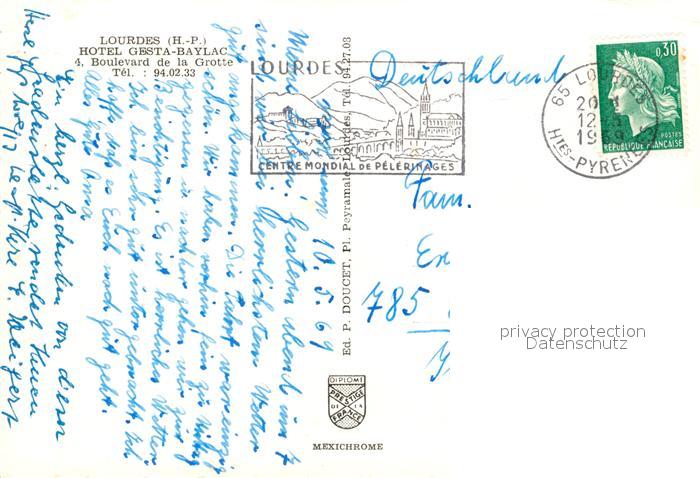 LOURDES (H.-P.)
HOTEL GESTA-BAYLAC
4, Boulevard de la Grotte
Tél. : 94.02.33
LOURDES
CENTRE MONDIAL DE PÈLERINAGES
65 LOURDES
1969
HTES-PYRENEES
0,30
POSTES
REPUBLIQUE FRANÇAISE
Deutschland
Fam.
785
Ed. P. DOUCET, Pl. Peyramale, Lourdes, Tél. 94.27.08
DIPLOME
PRESTIGE
DE LA
FRANCE
MEXICHROME
10.5.69
Gestern abend um 7
sind wir bei herrlichstem Wetter
gut angekommen. Die Fahrt war einzig
schön. Wir haben vorhin fein zu Mittag
gegessen u. nachher gehen wir zur
Es ist herrliches Wetter
Ich bin sehr gut untergebracht. Ich
hoffe daß es Euch noch gut geht.
Alles
Oma
Ein herzl. Gedenken von dieser
sendet Ihnen
privacy protection
Datenschutz